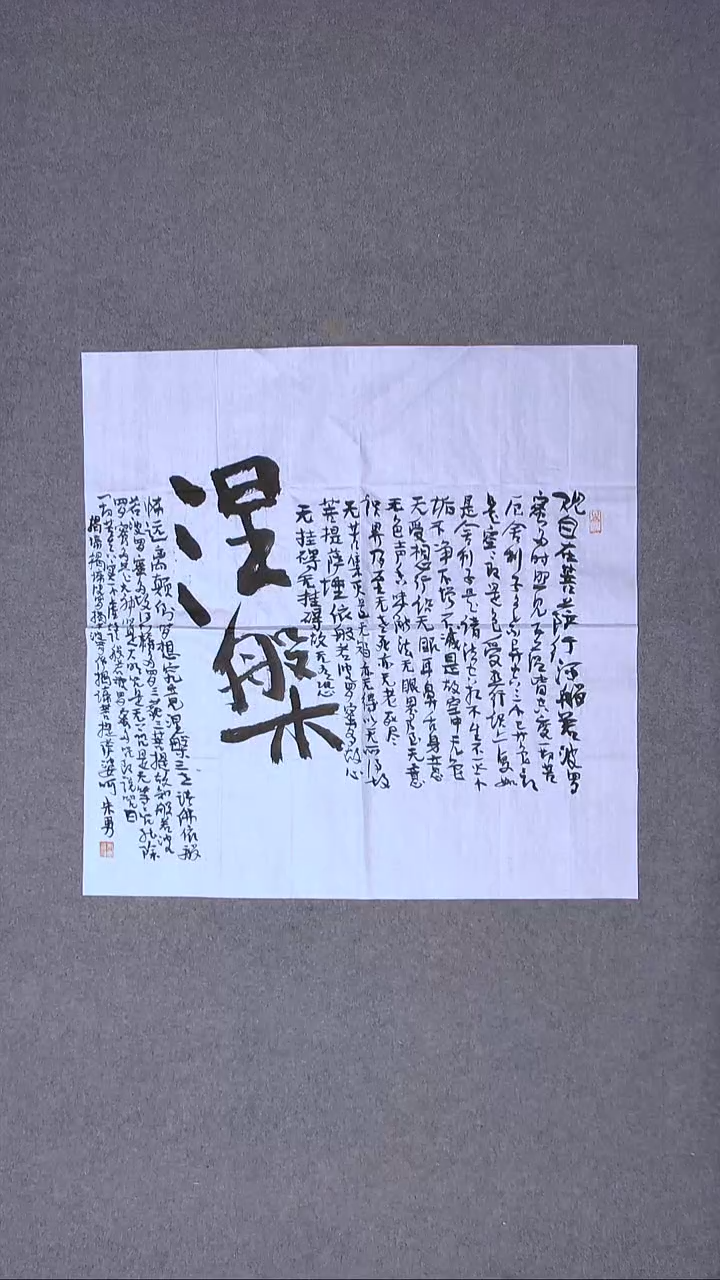 观自在菩萨行深般若波罗
蜜多时照见五蕴皆空度一切苦
厄舍利子色不异空空不异色色即
是空空即是色受想行识亦复如
是舍利子是诸法空相不生不灭不
垢不净不增不减是故空中无色
无受想行识无眼耳鼻舌身意
无色声香味触法无眼界乃至无意
识界乃至无老死亦无老死尽
无苦集灭道无智亦无得以无所得故
菩提萨埵依般若波罗蜜多故心
无挂碍无挂碍故无有恐
涅槃
怖远离颠倒梦想究竟涅槃三世诸佛依般
若波罗蜜多故得阿耨多罗三藐三菩提故知般若波
罗蜜多是大神咒是大明咒是无上咒是无等等咒能除
一切苦真实不虚故说般若波罗蜜多咒即说咒曰
揭谛揭谛波罗揭谛波罗僧揭谛菩提萨婆诃 朱勇